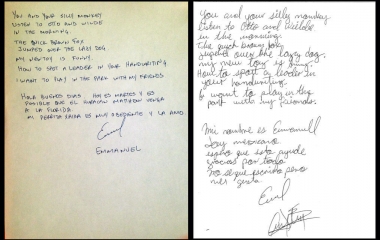 YOU AND YOUR SILLY MONKEY
LISTEN TO OTTO AND WILDE
IN THE MORNING.
THE QUICK BROWN FOX
JUMPED OVER THE LAZY DOG
MY NEW TOY IS FUNNY.
HOW TO SPOT A LEADER IN YOUR HANDWRITING
I WANT TO PLAY IN THE PARK WITH MY FRIENDS
HOLA BUENOS DIAS HOY ES MARTES Y ES
POSIBLE QUE EL HURACAN MATHEW VENGA
A LA FLORIDA.
MI PERRITA SALSA ES MUY OBEDIENTE Y LA AMO.
EMMANUEL
You and your silly monkey
listen to Otto and Wilde
in the morning.
The quick brown foxy
jumped over the lazy dog.
my new toy is funny.
How to spot a leader in
your handwriting.
I want to play in the
park with my friends.
Mi nombre es Emmanuell
Soy mexicano
espero que esta ayude
Gracias por todo
No se que escribir pero